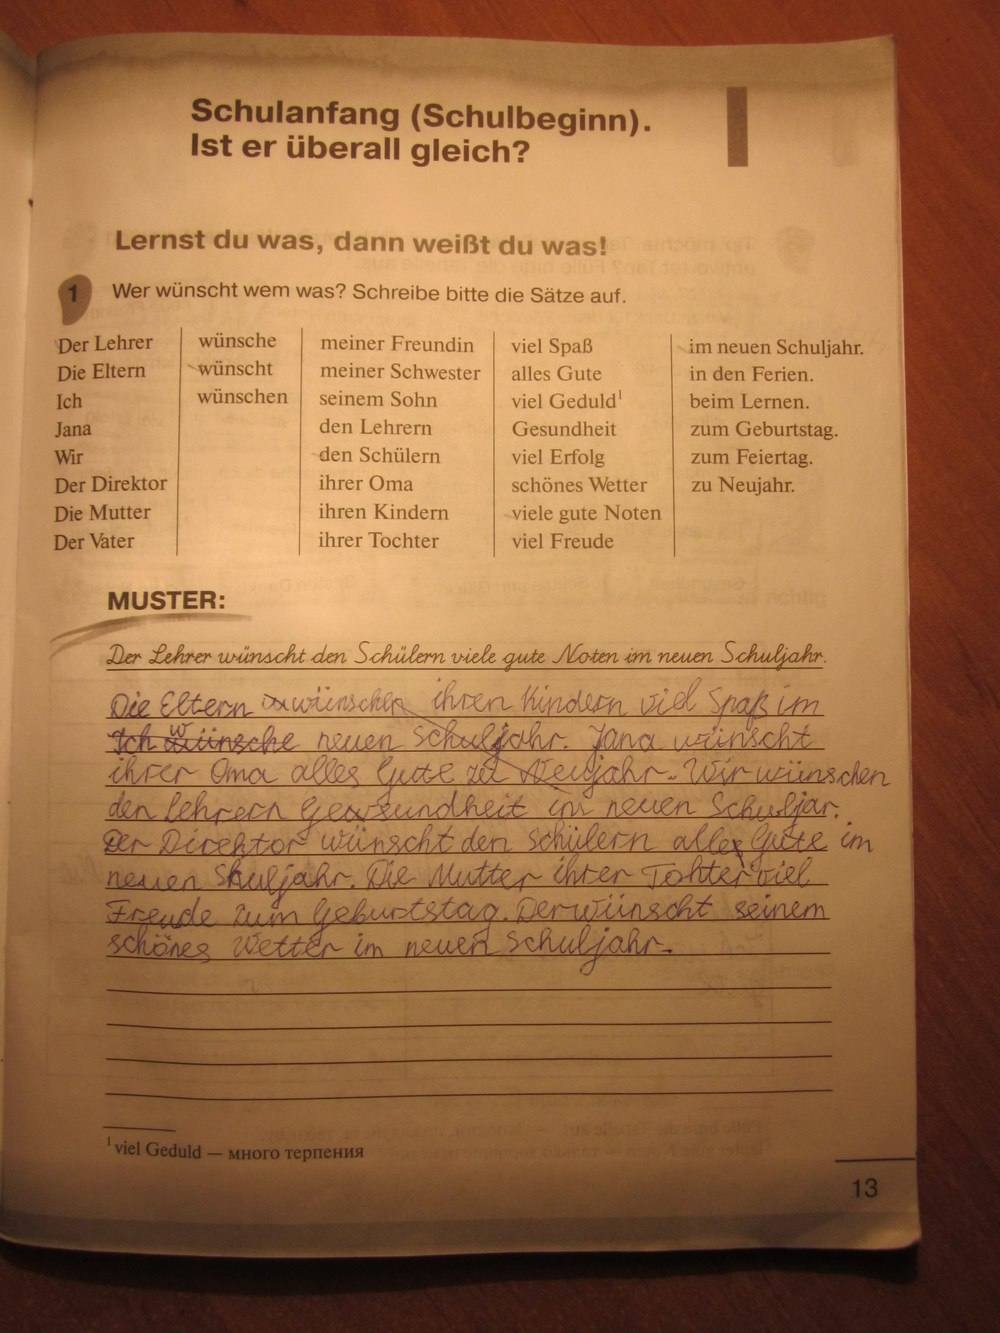 Schulanfang (Schulbeginn).
Ist er überall gleich?
I
Lernst du was, dann weißt du was!
1 Wer wünscht wem was? Schreibe bitte die Sätze auf.
Der Lehrer wünsche meiner Freundin viel Spaß im neuen Schuljahr.
Die Eltern wünscht meiner Schwester alles Gute in den Ferien.
Ich wünschen seinem Sohn viel Geduld¹ beim Lernen.
Jana den Lehrern Gesundheit zum Geburtstag.
Wir den Schülern viel Erfolg zum Feiertag.
Der Direktor ihrer Oma schönes Wetter zu Neujahr.
Die Mutter ihren Kindern viele gute Noten
Der Vater ihrer Tochter viel Freude
MUSTER:
Der Lehrer wünscht den Schülern viele gute Noten im neuen Schuljahr.
Die Eltern wünschen ihren Kindern viel Spaß im
Ich wünsche neuen Schuljahr. Jana wünscht
ihrer Oma alles Gute zu Neujahr. Wir wünschen
den Lehrern Gesundheit im neuen Schuljar.
Der Direktor wünscht den Schülern alles Gute im
neuen Skuljahr. Die Mutter ihrer Tohter viel
Freude zum Geburtstag. Der wünscht seinem
schönes Wetter im neuen Schuljahr.
¹ viel Geduld — много терпения
13